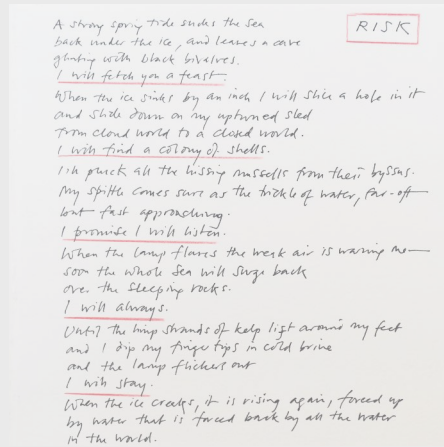 RISK
A strong spring tide sucks the sea
back under the ice, and leaves a cave
glinting with black bivalves.
I will fetch you a feast.
When the ice sinks by an inch I will slice a hole in it
and slide down on my upturned sled
from cloud world to a closed world.
I will find a colony of shells.
I'll pluck all the hissing mussells from their byssus.
My spittle comes sure as the trickle of water, far-off
but fast approaching.
I promise I will listen.
When the lamp flares the weak air is warning me —
soon the whole sea will surge back
over the sleeping rocks.
I will always.
Until the limp strands of kelp lift around my feet
and I dip my finger tips in cold brine
and the lamp flickers out
I will stay.
When the ice creaks, it is rising again, forced up
by water that is forced back by all the water
in the world.